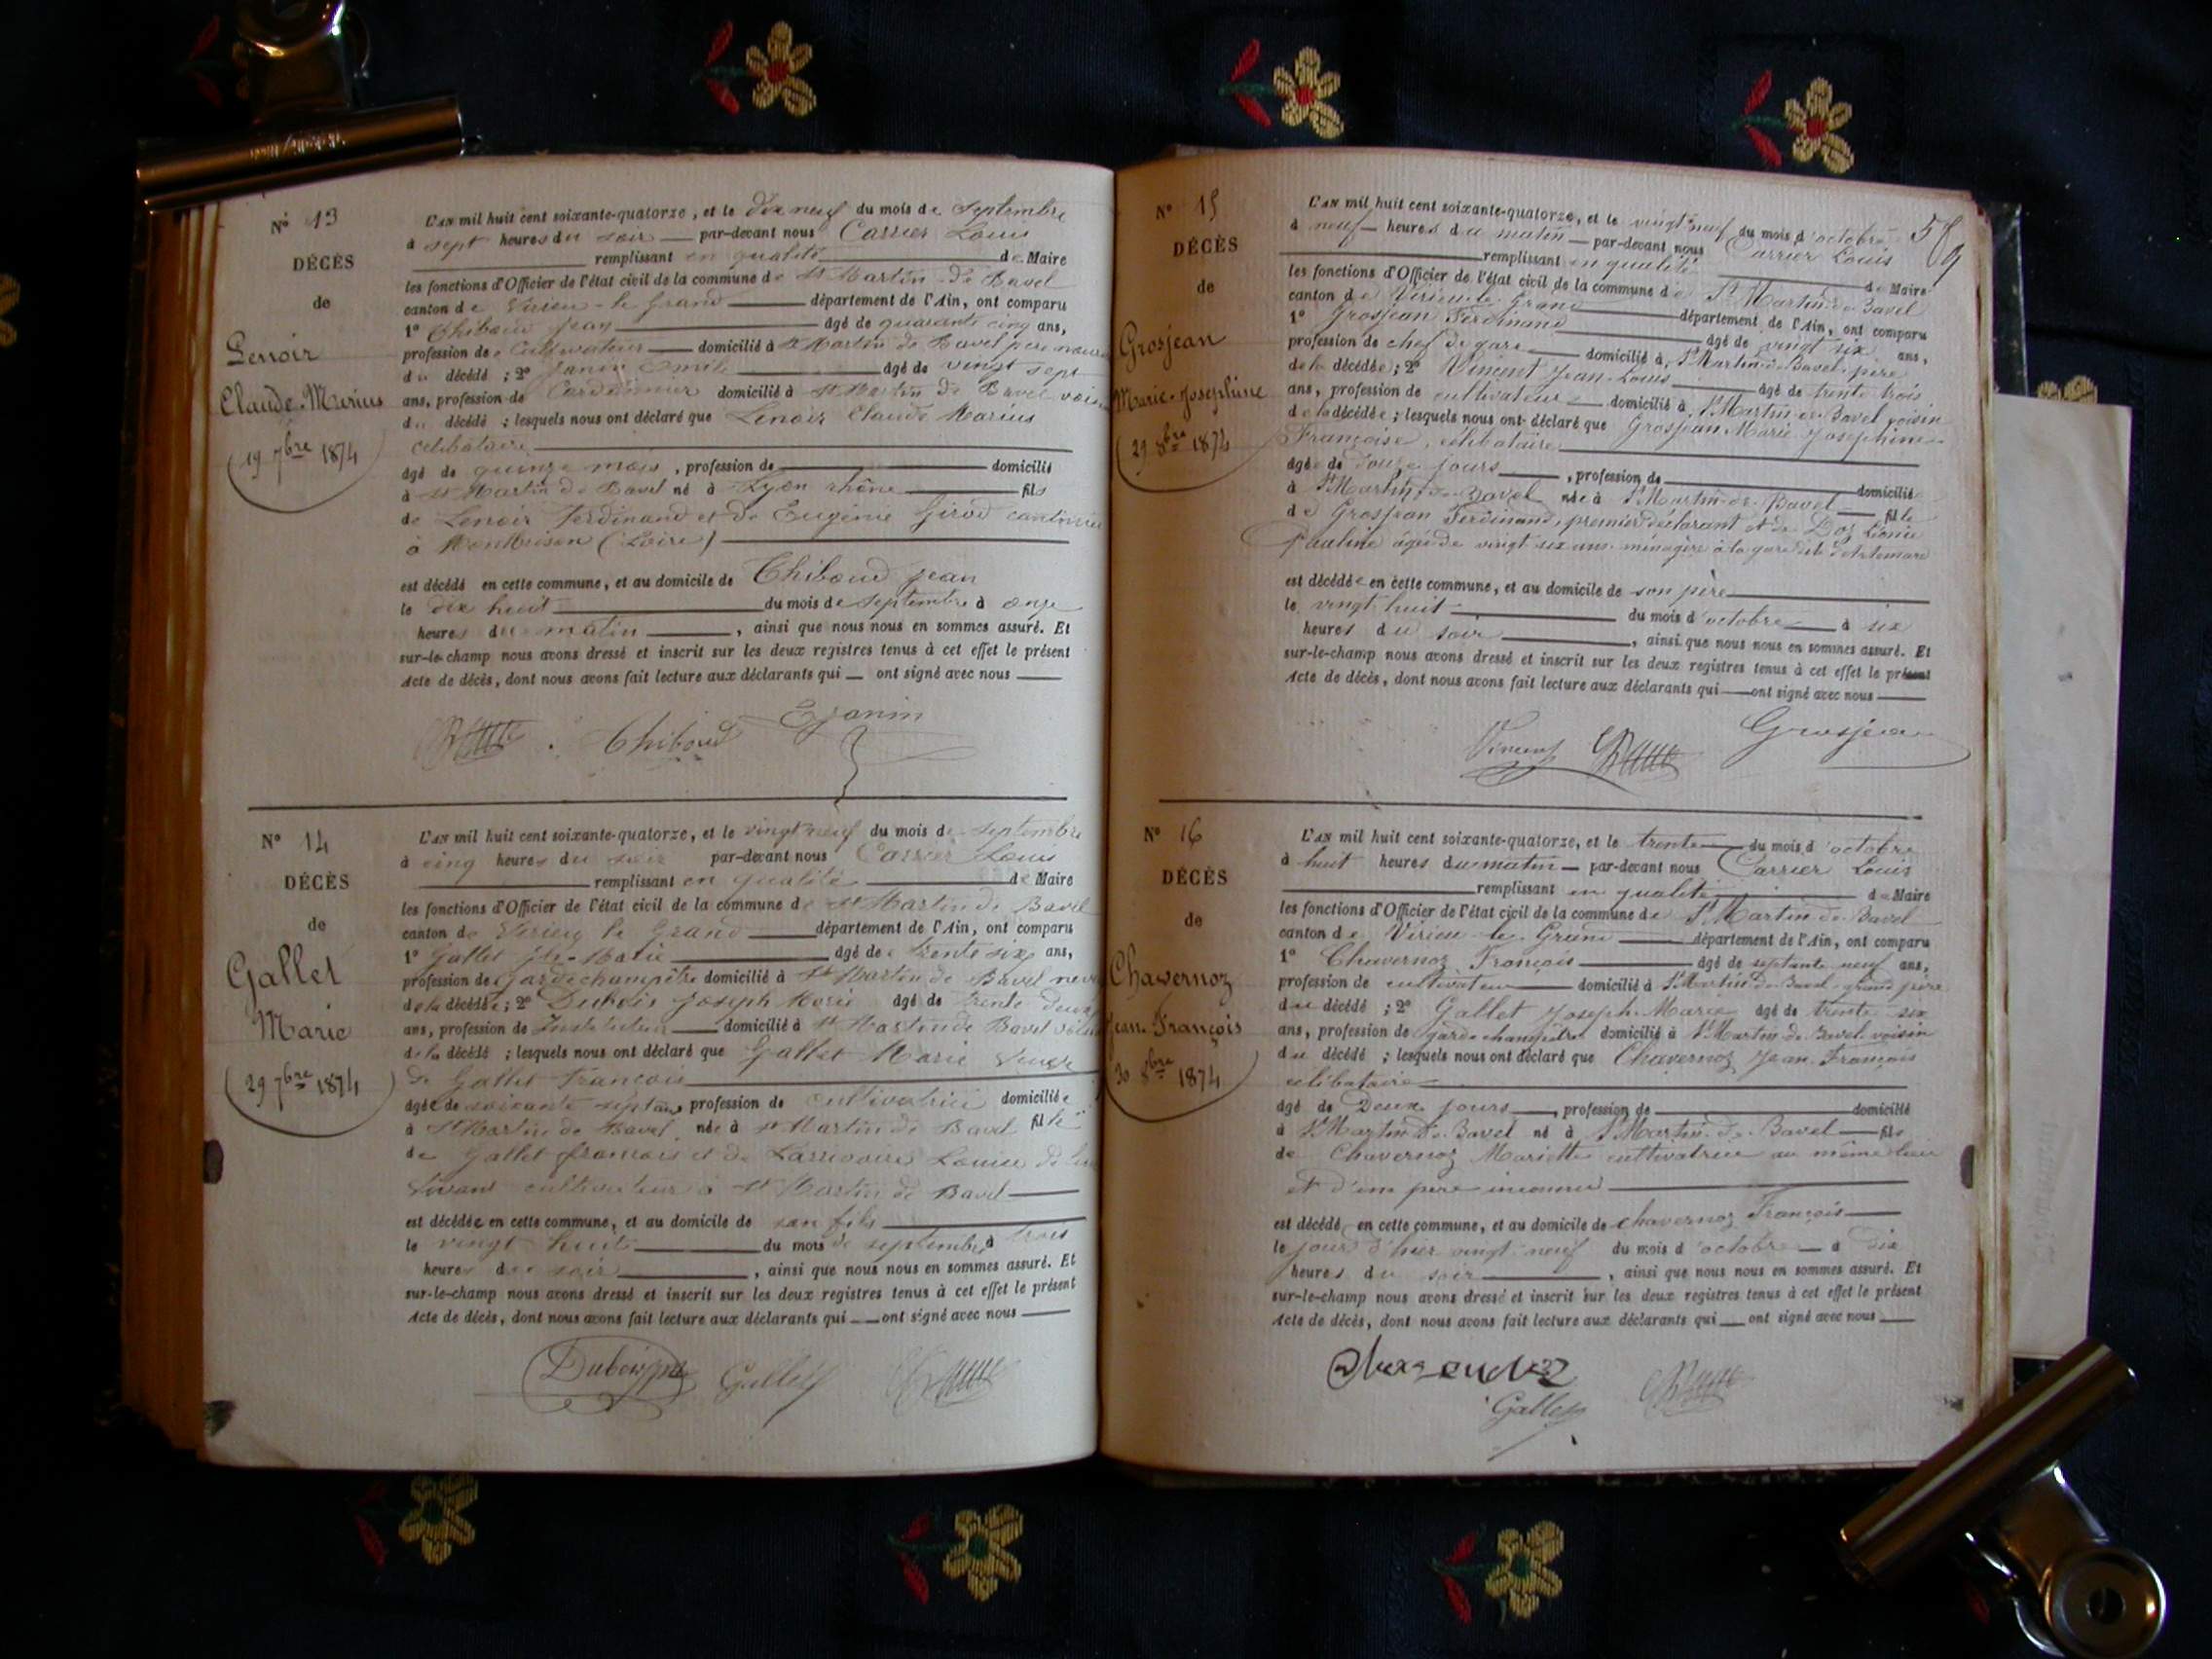 N° 13
DÉCÈS
de
Lenoir
Claude-Marius
(19 7bre 1874)
L'AN mil huit cent soixante-quatorze, et le dix neuf du mois de Septembre
à sept heures du soir — par-devant nous Carrier Louis
remplissant en qualité de Maire
les fonctions d'Officier de l'état civil de la commune de St Martin de Bavel
canton de Virieu-le Grand département de l'Ain, ont comparu
1° Thiboud Jean âgé de quarante cinq ans,
profession de Cultivateur domicilié à St Martin de Bavel père
du décédé ; 2° Janin Emile âgé de vingt sept
ans, profession de Cordonnier domicilié à St Martin de Bavel voisin
du décédé ; lesquels nous ont déclaré que Lenoir Claude Marius
célibataire
âgé de quinze mois, profession de domicilié
à St Martin de Bavel né à Lyon rhône fils
de Lenoir Ferdinand et de Eugénie Girod
à Montbrison (Loire)
est décédé en cette commune, et au domicile de Thiboud Jean
le dix huit du mois de Septembre à onze
heures du matin, ainsi que nous nous en sommes assuré. Et
sur-le-champ nous avons dressé et inscrit sur les deux registres tenus à cet effet le présent
Acte de décès, dont nous avons fait lecture aux déclarants qui — ont signé avec nous —
Thiboud EJanin
N° 14
DÉCÈS
de
Gallet
Marie
(29 7bre 1874)
L'AN mil huit cent soixante-quatorze, et le vingt neuf du mois de septembre
à cinq heures du soir par-devant nous Carrier Louis
remplissant en qualité de Maire
les fonctions d'Officier de l'état civil de la commune de St Martin de Bavel
canton de Virieu le Grand département de l'Ain, ont comparu
1° Gallet Jh-Marie âgé de trente six ans,
profession de Garde champêtre domicilié à St Martin de Bavel neveu
de la décédée ; 2° Dubois Joseph Marie âgé de trente deux
ans, profession de Instituteur domicilié à St Martin de Bavel voisin
de la décédé ; lesquels nous ont déclaré que Gallet Marie veuve
de Gallet francois
âgée de soixante sept ans profession de cultivatrice domiciliée
à St Martin de Bavel née à St Martin de Bavel fille
de Gallet francois et de Louise
vivant cultivateur à St Martin de Bavel
est décédée en cette commune, et au domicile de son fils
le vingt huit du mois de septembre à trois
heures du soir, ainsi que nous nous en sommes assuré. Et
sur-le-champ nous avons dressé et inscrit sur les deux registres tenus à cet effet le présent
Acte de décès, dont nous avons fait lecture aux déclarants qui — ont signé avec nous —
Gallet
N° 15
DÉCÈS
de
Grosjean
Marie-Joséphine
(29 8bre 1874
L'AN mil huit cent soixante-quatorze, et le vingt neuf du mois d'octobre
à neuf heures du matin — par-devant nous Carrier Louis
remplissant en qualité de Maire
les fonctions d'Officier de l'état civil de la commune de St Martin de Bavel
canton de Virieu le Grand département de l'Ain, ont comparu
1° Grosjean Ferdinand âgé de vingt six ans,
profession de chef de gare domicilié à St Martin de Bavel père
de la décédée ; 2° Vincent Jean-Louis âgé de trente trois
ans, profession de cultivateur domicilié à St Martin de Bavel voisin
de la décédée ; lesquels nous ont déclaré que Grosjean Marie Joséphine
Françoise, célibataire
âgée de douze jours, profession de domicilié
à St Martin de Bavel née à St Martin de Bavel fille
de Grosjean Ferdinand, premier déclarant et de Léonie
Pauline âgée de vingt six ans ménagère à la gare d'Artemare
est décédée en cette commune, et au domicile de son père
le vingt huit du mois d'octobre à six
heures du soir, ainsi que nous nous en sommes assuré. Et
sur-le-champ nous avons dressé et inscrit sur les deux registres tenus à cet effet le présent
Acte de décès, dont nous avons fait lecture aux déclarants qui — ont signé avec nous —
Vincent Grosjean
N° 16
DÉCÈS
de
Chavernoz
Jean-François
30 8bre 1874)
L'AN mil huit cent soixante-quatorze, et le trente du mois d'octobre
à huit heures du matin — par-devant nous Carrier Louis
remplissant en qualité de Maire
les fonctions d'Officier de l'état civil de la commune de St Martin de Bavel
canton de Virieu le Grand département de l'Ain, ont comparu
1° Chavernoz François âgé de septante neuf ans,
profession de cultivateur domicilié à St Martin de Bavel grand père
du décédé ; 2° Gallet Joseph Marie âgé de trente six
ans, profession de garde champêtre domicilié à St Martin de Bavel voisin
du décédé ; lesquels nous ont déclaré que Chavernoz Jean François
célibataire
âgé de Deux jours, profession de domicilié
à St Martin de Bavel né à St Martin de Bavel fils
de Chavernoz Mariette cultivatrice au même lieu
et d'un père inconnu
est décédé en cette commune, et au domicile de Chavernoz François
le jour d'hier vingt neuf du mois d'octobre à dix
heures du soir, ainsi que nous nous en sommes assuré. Et
sur-le-champ nous avons dressé et inscrit sur les deux registres tenus à cet effet le présent
Acte de décès, dont nous avons fait lecture aux déclarants qui — ont signé avec nous —
Gallet